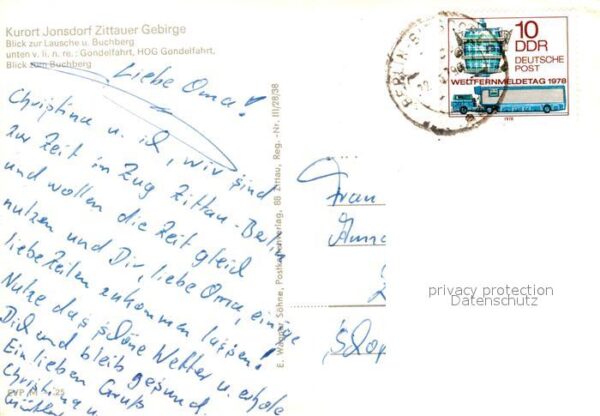 Kurort Jonsdorf Zittauer Gebirge
Blick zur Lausche u. Buchberg
unten v. li. n. re.: Gondelfahrt, HOG Gondelfahrt,
Blick zum Buchberg
Liebe Oma!
Christina u. ich, wir sind
zur Zeit im Zug Zittau-Berlin
und wollen die Zeit gleich
nutzen und Dir, liebe Oma, einige
liebe Zeilen zukommen lassen!
Nutze das schöne Wetter u. erhole
Dich und bleib gesund.
Ein lieben Gruß
Christina u.
EVP M -,25
E. Wagner Söhne, Postkartenverlag, 88 Zittau, Reg.-Nr. III/28/38
BERLIN
10
DDR
DEUTSCHE
POST
WELTFERNMELDETAG 1978
1978
Frau
privacy protection
Datenschutz